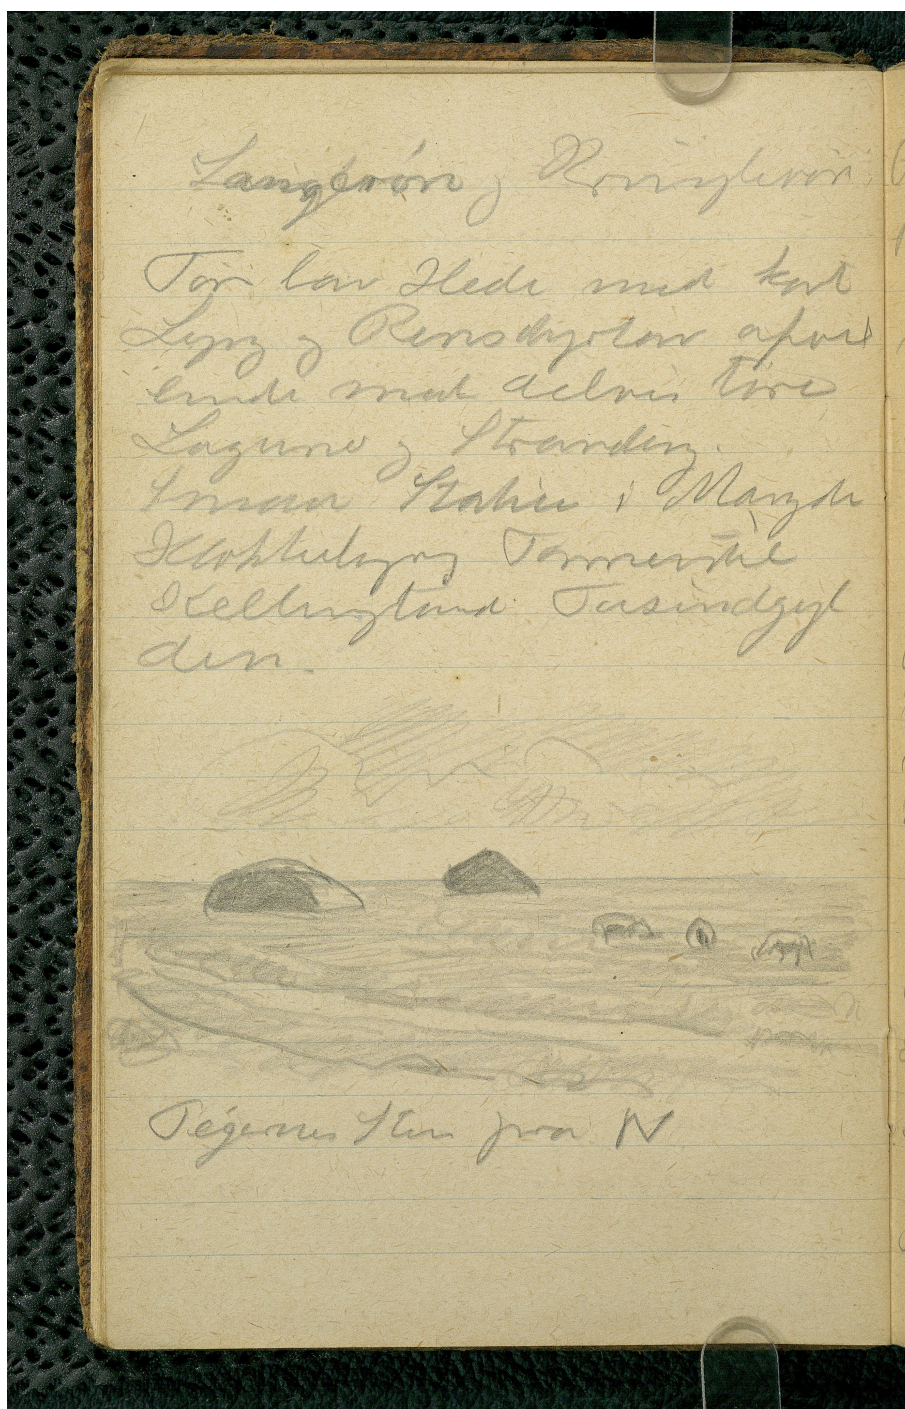 Langerön og Kringlerön
Tör lav Hede med kort
Lyng og Rensdyrlav afvex
lende med delvis töre
Lagune og Strandeng.
Smaa Stakie i Mængde
Klokkelyng Tormentil
Kellingtand Tusindgyl
den.
Pegernes Sten fra N